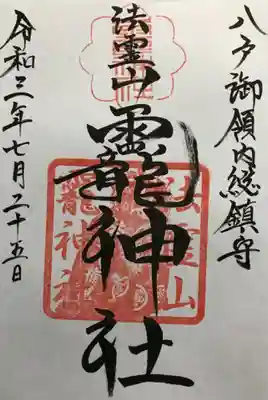 八戸御領内総鎮守
法霊山
龗神社
令和三年七月二十五日
法霊山
龗神社